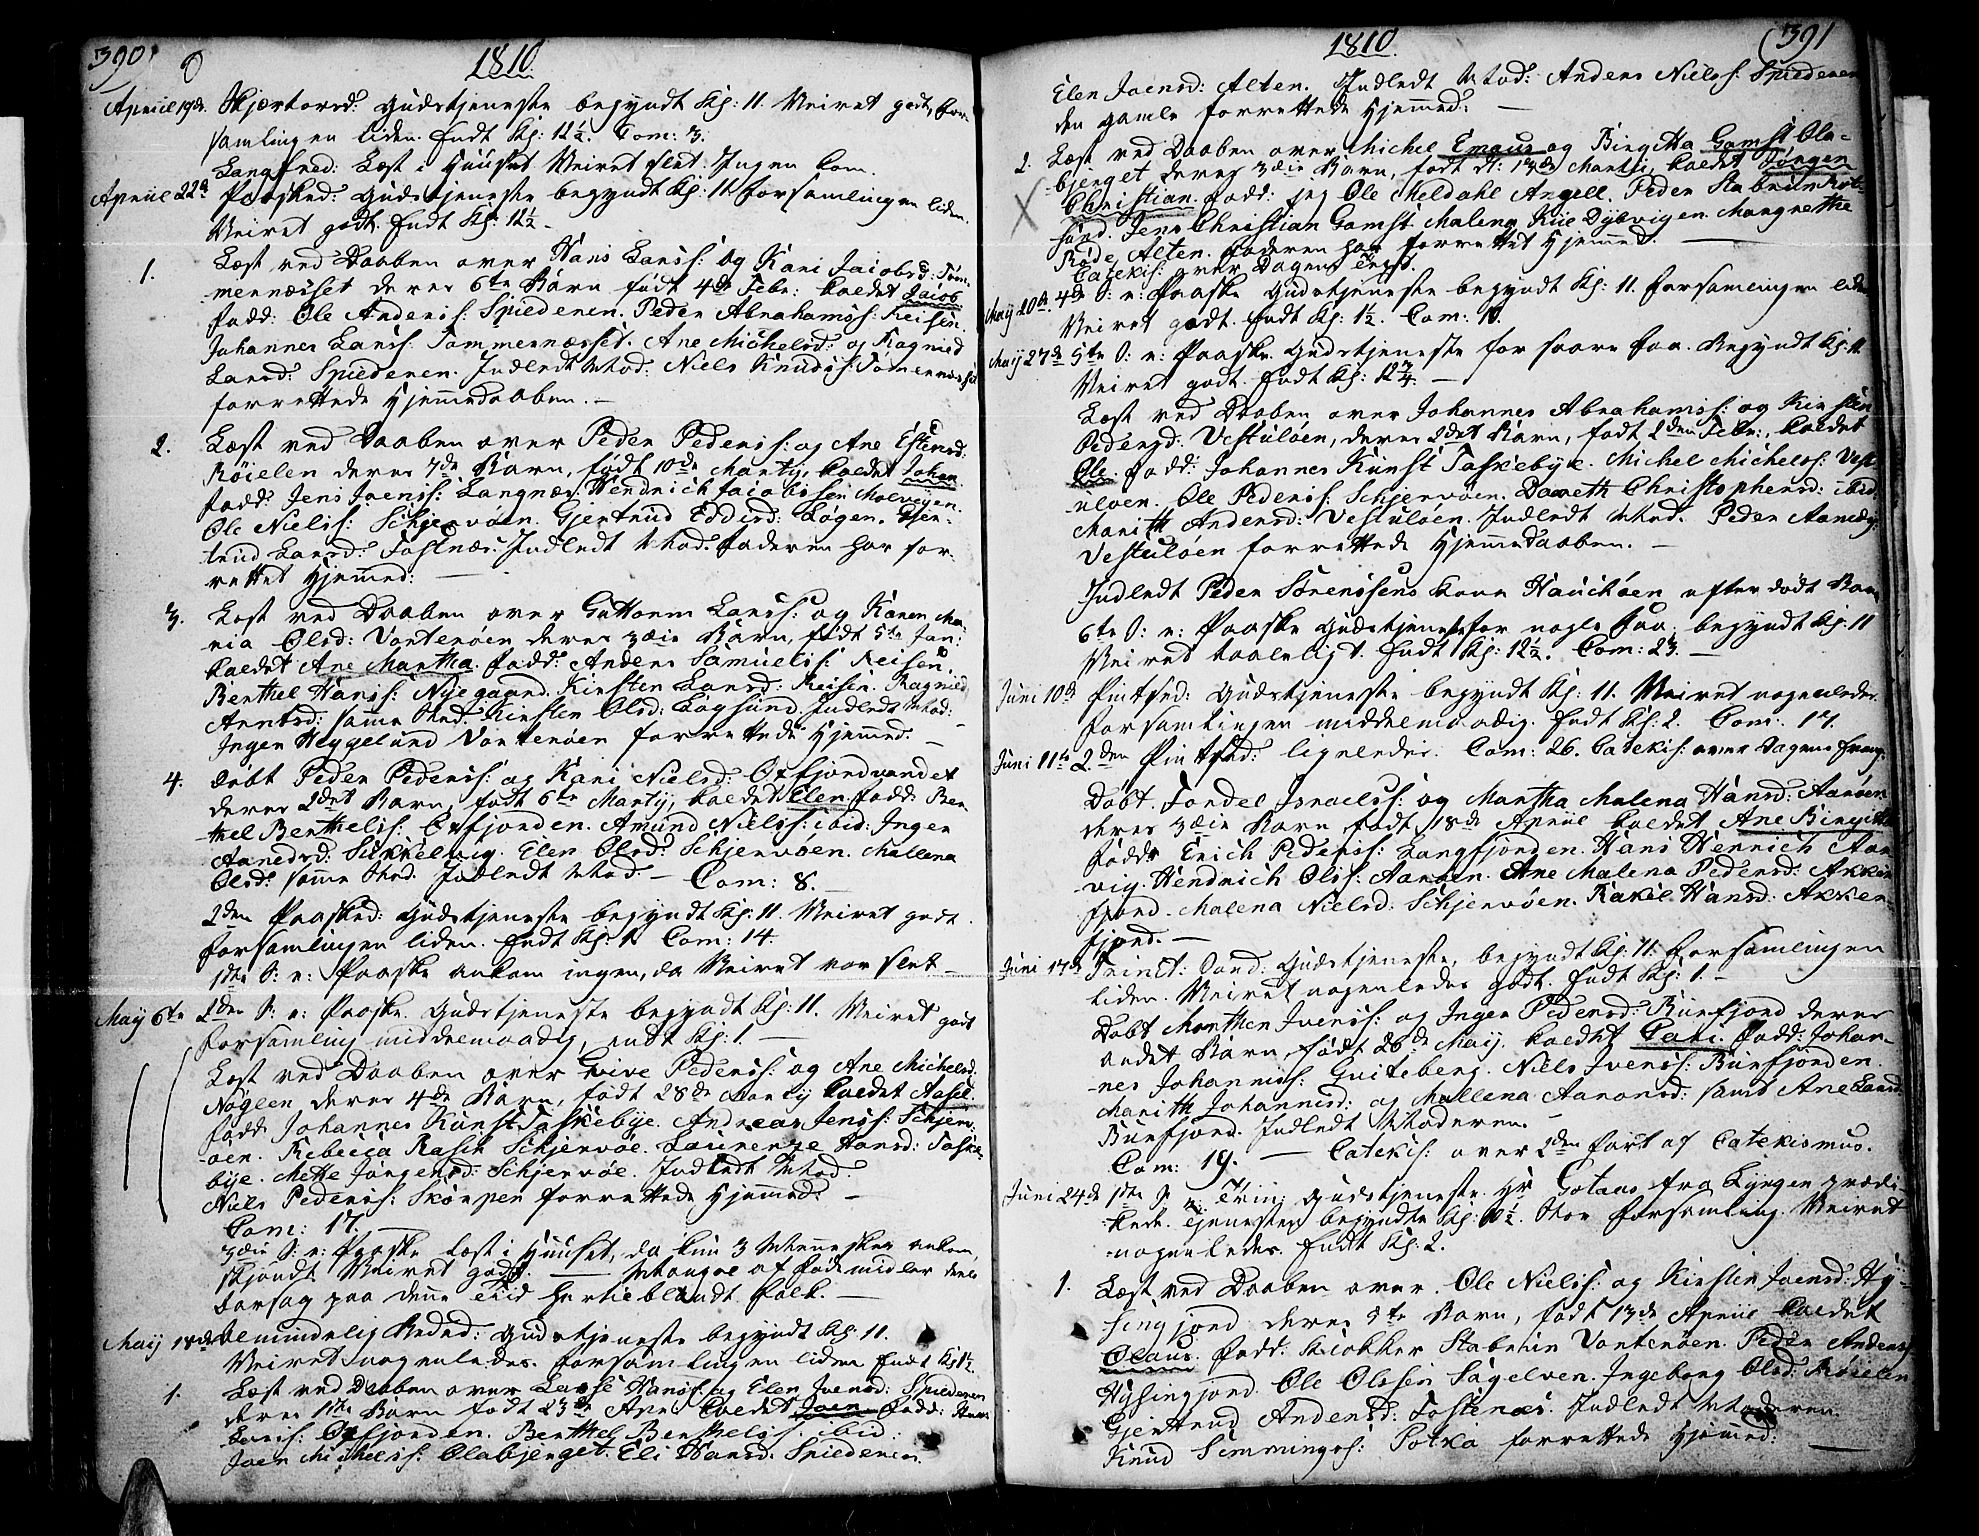 390.
1810
Apriil 19de Skjærtorsd: Gudstjeneste begyndt Kl: 11. Veiret godt, for-
samlingen liden. Endt Kl: 12½. Com: 3.
Langfred: Læst i Huuset Veiret slet. Ingen Com.
Apriil 22de Paasked: Gudstjeneste begyndt Kl: 11. Forsamlingen liden.
Veiret godt. Endt Kl: 12½ -
1. Læst ved Daaben over Hans Larss: og Kari Jacobsd: Tøm-
mernæsset deres 6te Barn født 4de Febr: kaldet Jacob.
Fadd: Ole Anderss: Spiederen. Peder Abrahamss: Reisen.
Johannes Larss. Tommernæsset. Ane Michelsd: og Ragnild
Larsd: Spiederen. Indledt Mod: Niels Knudss: Tømernæsset
forrettede Hjemmedaaben. -
2. Læst ved Daaben over Peder Pederss: og Ane Estensd:
Røielen deres 7de Barn, født 10de Martij, kaldet Johan
Fadd: Jens Joenss: Langnæs. Hendrich Jacobssen Molvigen.
Ole Nielss: Schjervøen. Gjertrud Eddisd: Løgen. Gjer-
trud Larsd: Tostnæs. Indledt Mod. Faderen har for-
rettet Hjemmed: -
3. Læst ved Daaben over Guttorm Larss: og Karen Ma-
ria Olsd: Vorterøen deres 3die Barn, født 5te Jan:
kaldet Ane Martha. Fadd: Anders Samuelss: Reisen.
Berthel Hanss: Nyegaard. Kirsten Larsd: Reisen. Ragnild
Arntsd: samme Sted. Kirsten Olsd: Løgsund. Indledt Mod:
Inger Heggelund Vorterøen forrettede Hjemmed. -
4. Døbt Peder Pederss: og Kari Nielsd: Oxfjordvandet
deres 2det Barn, født 6te Martij, kaldet Elen. Fadd: Ber-
thel Berthelss: Oxfjorden. Amund Nielss: ibid: Inger
Aanedsd: Sukkelvig. Elen Olsd: Schjervøen. Mallena
Olsd: samme Sted. Indledt Mod. - Com: 8. -
2den Paasked: Gudstjeneste begyndt Kl: 11. Veiret godt.
Forsamlingen liden. Endt Kl: 1. Com: 14.
1ste S: e: Paaske ankom ingen, da Veiret var slet -
Maij 6te 2den S: e: Paaske. Gudstjeneste begyndt Kl: 11. Veiret godt
Forsamling middelmaadig, endt Kl: 1. -
Læst ved Daaben over Give Pederss: og Ane Michelsd:
Nøgleen deres 4de Barn, født 28de Martij kaldet Aasel.
Fadd Johannes Kunst Taskebye. Andreas Jenss: Schjerv-
øen. Rebecca Rasch Schjervøe. Laurenze Hansd: Taske-
bye. Mette Jørgensd: Schjervøe. Indledt Mod.
Niels Pederss: Skorpen forrettede Hjemmed: -
Com: 17. -
3die S: e: Paaske Læst i Huuset, da kun 3 Mennesker ankom,
skjøndt Veiret godt. - Mangel af Fødemidler deels
aarsag paa denne Tiid hertil blandt Folk. -
Maij 18de Almindelig Beded: Gudstjeneste begyndt Kl: 11.
Veiret nogenledes. Forsamlingen liden Endt Kl 1½.
1. Læst ved Daaben over Lasse Hanss: og Elen Iversd: Spiederen
deres 11te Barn født 23de Apr: kaldet Joen. Fadd: Hans
Larss: Oxfjorden. Berthel Berthelss: ibid:
Joen Michelss: Olabjerget. Eli Hansd: Spiederen.
391
1810.
Elen Joensd: Alten. Indledt Mod: Anders Nielss: Spiederen
den gamle forrettede Hjemmed: -
2. Læst ved Daaben over Michel Emaus og Birgitta Gamst Ole-
bjerget deres 3die Barn, født d: 13de Martij, kaldet Jørgen
Christian. Fadd: jeg Ole Meldahl Angell. Peder Stabrun Rot-
sund. Jens Christian Gamst. Malena Kiil Dybvigen. Margrethe
Røde, Alten. Faderen har forrettet Hjemmed. -
Catekis: over Dagens Text.
Maij 20de 4de S: e: Paaske Gudstjeneste begyndt Kl: 11. Forsamlingen liden
Veiret godt. Endt Kl: 1½. Com: 10.
Maij 27de 5te S: e: Paaske. Gudstjeneste for saare faa. Begyndt Kl: 11
Veiret godt. Endt Kl: 12¾. -
Læst ved Daaben over Johannes Abrahamss: og Kirsten
Pedersd: Vesterløen, deres 2det Barn, født 2den Febr:, kaldet
Ole. Fadd: Johannes Kunst Taskebye. Michel Michelss: Vest-
erløen. Ole Pederss: Schjervøen. Dorreth Christophersd: ibid.
Marith Andersd: Vesterløen. Indledt Mod. Peder Aaneds:
Vesterløen forrettede Hjemmedaaben. -
Indledt Peder Sørenssens Kone Hauckøen efter dødt Barn
6te S: e: Paaske Gudstjeneste for nogle faa. begyndt Kl: 11
Veiret taaleligt. Endt Kl: 12½. Com: 23. -
Juni 10de Pintsed: Gudstjeneste begyndt Kl: 11. Veiret nogenledes.
Forsamlingen middelmaadig. Endt Kl: 2. Com: 17.
Juni 11te 2den Pintsed: ligeledes. Com: 26. Catekis: over Dagens Evang:
Døbt. Tordel Israelss: og Martha Malena Hansd: Aarøen
deres 3die Barn, født 18de Apriil kaldet Ane Birgitta
Fadd: Erich Pederss: Langfjorden. Hans Henrich Aar-
vig. Hendrich Olss: Aarøen. Ane Malena Pedersd: Akker-
fjord. Malena Nielsd: Schjervøen. Rakel Hansd: Akker-
fjord. -
Juni 17de Trinit: Sond: Gudstjeneste, begyndt Kl: 11. Forsamlingen
liden. Veiret nogenledes godt. Endt Kl: 1. -
Døbt Morthen Iverss: og Inger Pedersd: Burfjord deres
andet Barn, født 26de Maij. kaldet Cari. Fadd: Johan-
nes Johanness: Guiteberg. Niels Iverss: Burfjorden.
Marith Johannesd: og Mallena Aaronsd: samt Ane Larsd:
Burfjord. Indledt Moderen.
Com: 19. - Catekis: over 2den Part af Catekismus.
Juni 24de 1ste S: e: Trin: Gudstjeneste. Hr Gotaas fra Lyngen prædi-
kede. Tjenesten begyndte Kl: 10½. Stor Forsamling. Veiret
nogenledes. Endt Kl: 2.
1. Læst ved Daaben over. Ole Nielss: og Kirsten Joensd: Hy-
singjord deres 9te Barn, født 13de Apriil kaldet
Olaus. Fadd: Klokker Stabrun Vorterøen. Peder Anderss:
Hysingjord. Ole Olesen Sagelven. Ingeborg Olsd: Røielen
Gjertrud Andersd: Tostenæs. Indledt Moderen.
Knud Simmings: Potka forrettede Hjemmed: -